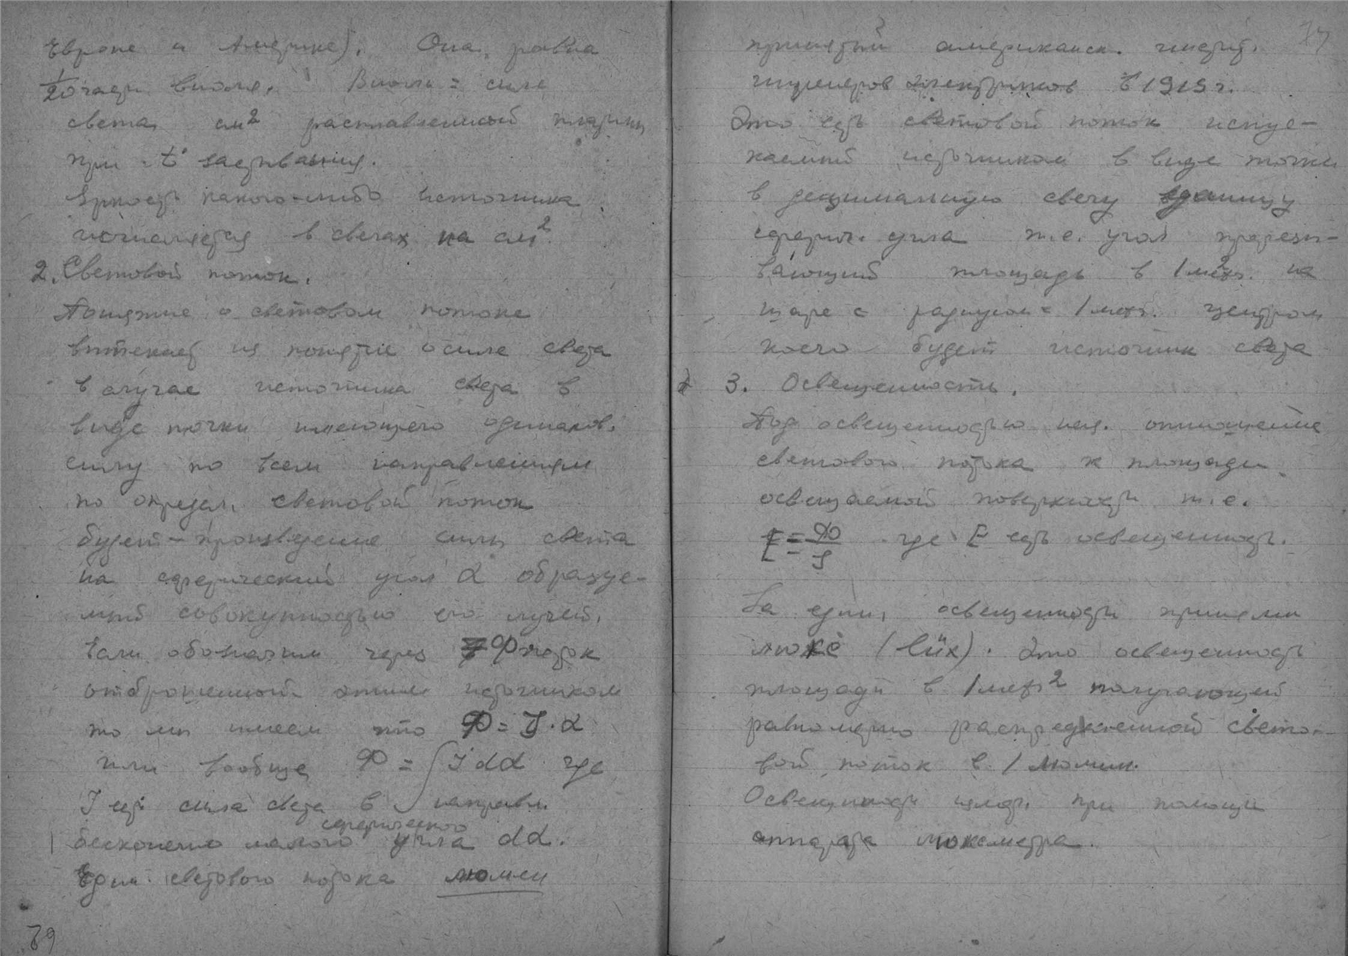 Европе и Америке). Она равна
1/20 части виоля. Виоль = силе
света см² расплавленной платины
при t° застывания.
Яркость какого-либо источника
исчисляется в свечах на см².
2. Световой поток.
Понятие о световом потоке
вытекает из понятие о силе света
в случае источника света в
виде точки имеющего одинаков.
силу по всем направлениям
по определ. световой поток
будет – произведение силы света
на сферический угол α образуе-
мый совокупностью его лучей.
Если обозначим через Ф поток
отброшенный этим источником
то мы имеем что Ф = J·α
или вообще Ф = ∫ J dα где
J есть сила света в направл.
бесконечно малого сферического угла dα.
Един. светового потока люмен
79
принятый американск. инстит.
инженеров электриков в 1915 г.
Это есть световой поток испус-
каемый источником в виде точки
в децимальную свечу в единицу
сферич. угла т.е. угол прорезы-
вающий площадь в 1 мет². на
шаре с радиусом = 1 мет. центром
коего будет источник света
3. Освещенность.
Под освещенностью наз. отношение
светового потока к площади
освещаемой поверхности т.е.
E = Ф/S где E есть освещенность.
За един. освещенности приняли
люкс (lux). Это освещенность
площади в 1 мет² получающей
равномерно распределенной свето-
вой поток в 1 люмен
Освещенность измер. при помощи
аппарата люксметра.